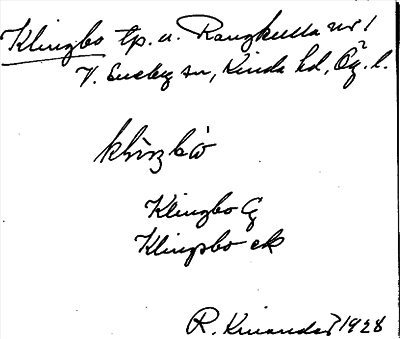 Klingbo tp. u. Rangkulla nr 1
V. Eneby sn, Kinda hd, Ög. l.
klìŋbò
Klingbo G
Klingsbo ek
R. Kinander 1928